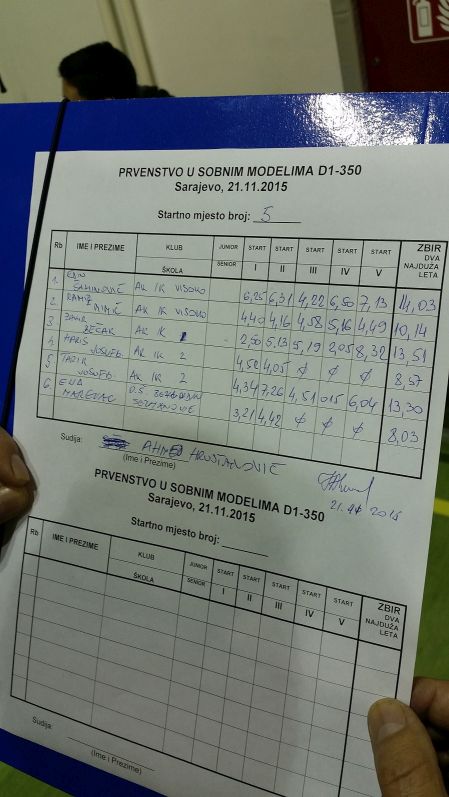 PRVENSTVO U SOBNIM MODELIMA D1-350
Sarajevo, 21.11.2015
Startno mjesto broj: 5
Rb IME I PREZIME KLUB ŠKOLA JUNIOR SENIOR START I START II START III START IV START V ZBIR DVA NAJDUŽA LETA
1. EDIN AK IK VISOKO 6,25 6,31 4,22 6,50 7,13 14,03
2. RAMIZ MIMIĆ AK IK VISOKO 4,40 4,16 4,58 5,16 4,49 10,14
3. ZEČAR AK IK 2,50 5,13 5,19 2,05 8,32 13,51
4. HARIS JUSUFB. AK IK 2 4,52 4,05 ϕ ϕ ϕ 8,57
5. TARIK JUSUFB. AK IK 2 4,34 7,26 4,51 015 6,04 13,30
6. EMA O.Š. 3,21 4,42 ϕ ϕ ϕ 8,03
Sudija: AHMED HRUSTANOVIĆ
(Ime i Prezime)
21. 2015
PRVENSTVO U SOBNIM MODELIMA D1-350
Sarajevo, 21.11.2015
Startno mjesto broj:
Rb IME I PREZIME KLUB ŠKOLA JUNIOR SENIOR START I START II START III START IV START V ZBIR DVA NAJDUŽA LETA
Sudija:
(Ime i Prezime)